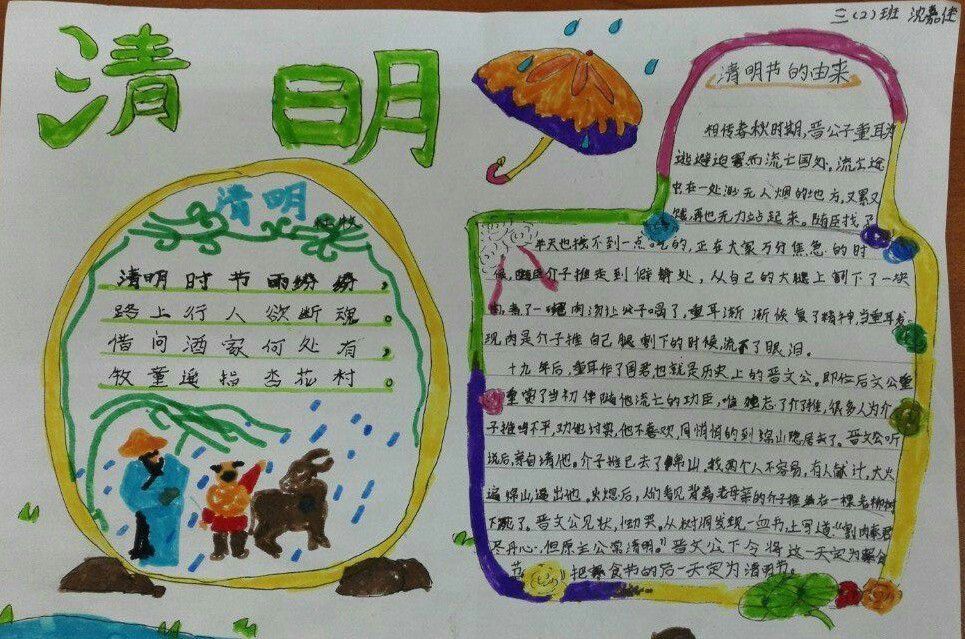 三(2)班 沈嘉佳
清明
清明
杜牧
清明时节雨纷纷，
路上行人欲断魂。
借问酒家何处有，
牧童遥指杏花村。
清明节的由来
相传春秋时期，晋公子重耳为
逃避迫害而流亡国外。流亡途
中在一处渺无人烟的地方，又累又
饿，再也无力站起来。随臣找了
半天也找不到一点吃的，正在大家万分焦急的时
候，随臣介子推走到僻静处，从自己的大腿上割下了一块
肉，煮了一碗肉汤让公子喝了，重耳渐渐恢复了精神，当重耳发
现，肉是介子推自己腿割下的时候，流下了眼泪。
十九年后，重耳作了国君也就是历史上的晋文公。即位后文公重
重赏了当初伴随他流亡的功臣，唯独忘了介子推，很多人为介
子推鸣不平，劝他讨赏，他不喜欢，同悄悄的到绵山隐居去了。晋文公听
说后，亲自请他。介子推已去了绵山，找两个人不容易，有人献计，大火
逼绵山逼出他。火熄后，人们看见背着老母亲的介子推坐在一棵老柳树
下死了。晋文公见状，恸哭。从树洞发现一血书，上写道："割肉奉君
尽丹心，但愿主公常清明。"晋文公下令将这一天定为寒食
节。把寒食节的后一天定为清明节。